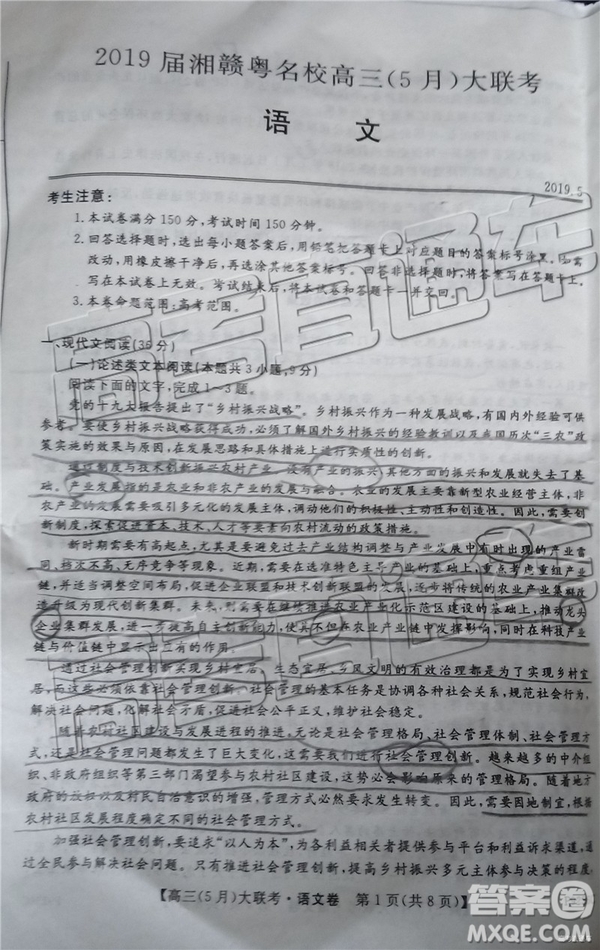 2019届湘赣粤名校高三(5月)大联考
语 文
2019.5
考生注意:
1.本试卷满分150分,考试时间150分钟。
2.回答选择题时,选出每小题答案后,用铅笔把答题卡上对应题目的答案标号涂黑,如需
改动,用橡皮擦干净后,再选涂其他答案标号。回答非选择题时,将答案写在答题卡上,
写在本试卷上无效。考试结束后,将本试卷和答题卡一并交回。
3.本卷命题范围:高考范围。
一、现代文阅读(36分)
(一)论述类文本阅读(本题共3小题,9分)
阅读下面的文字,完成1~3题。
党的十九大报告提出了“乡村振兴战略”。乡村振兴作为一种发展战略,有国内外经验可供
参考。要使乡村振兴战略获得成功,必须了解国外乡村振兴的经验教训以及我国历次“三农”政
策实施的效果与原因,在发展思路和具体措施上进行实质性的创新。
通过制度与技术创新振兴农村产业。没有产业的振兴,其他方面的振兴和发展就失去了基
础。产业发展指的是农业和非农产业的发展与融合。农业的发展主要靠新型农业经营主体,非
农产业的发展需要吸引多元化的发展主体,调动他们的积极性、主动性和创造性。因此,需要创
新制度,探索促进资本、技术、人才等要素向农村流动的政策措施。
新时期需要有高起点,尤其是要避免过去产业结构调整与产业发展中有时出现的产业雷
同、档次不高、无序竞争等现象。近期,需要在选准特色主导产业的基础上,重点考虑重组产业
链,并适当调整空间布局,促进企业联盟和技术创新联盟的发展,逐步将传统的农业产业集群改
造升级为现代创新集群。未来,则需要在继续推动农业产业化示范区建设的基础上,推动龙头
企业集群发展,进一步提高自主创新能力,使其不但在农业产业链中发挥影响,同时在科技产业
链与价值链中显示出应有的作用。
通过社会管理创新实现乡村宜居。生态宜居和乡风文明的有效治理都是为了实现乡村宜
居,而这些必须依靠社会管理创新。社会管理的基本任务是协调各种社会关系,规范社会行为,
解决社会问题,化解社会矛盾,促进社会公平正义,维护社会稳定。
随着农村社区与发展进程的推进,无论是社会管理格局、社会管理体制、社会管理方
式,还是社会管理问题都发生了巨大变化,这需要我们进行社会管理创新。越来越多的中介组
织、非政府组织等第三部门渴望参与农村社区建设,这势必会影响原来的管理格局。随着地方
政府的放权以及村民自治意识的增强,管理方式必然要求发生转变。因此,需要因地制宜,根据
农村社区发展程度确定不同的社会管理方式。
加强社会管理创新,要追求“以人为本”,为各利益相关者提供参与平台和利益诉求渠道,通
过全民参与解决社会问题。只有推进社会管理创新,提高乡村振兴多元主体参与的积极度,
【高三(5月)大联考·语文卷 第1页(共8页)】
答案圈
MXQE.COM